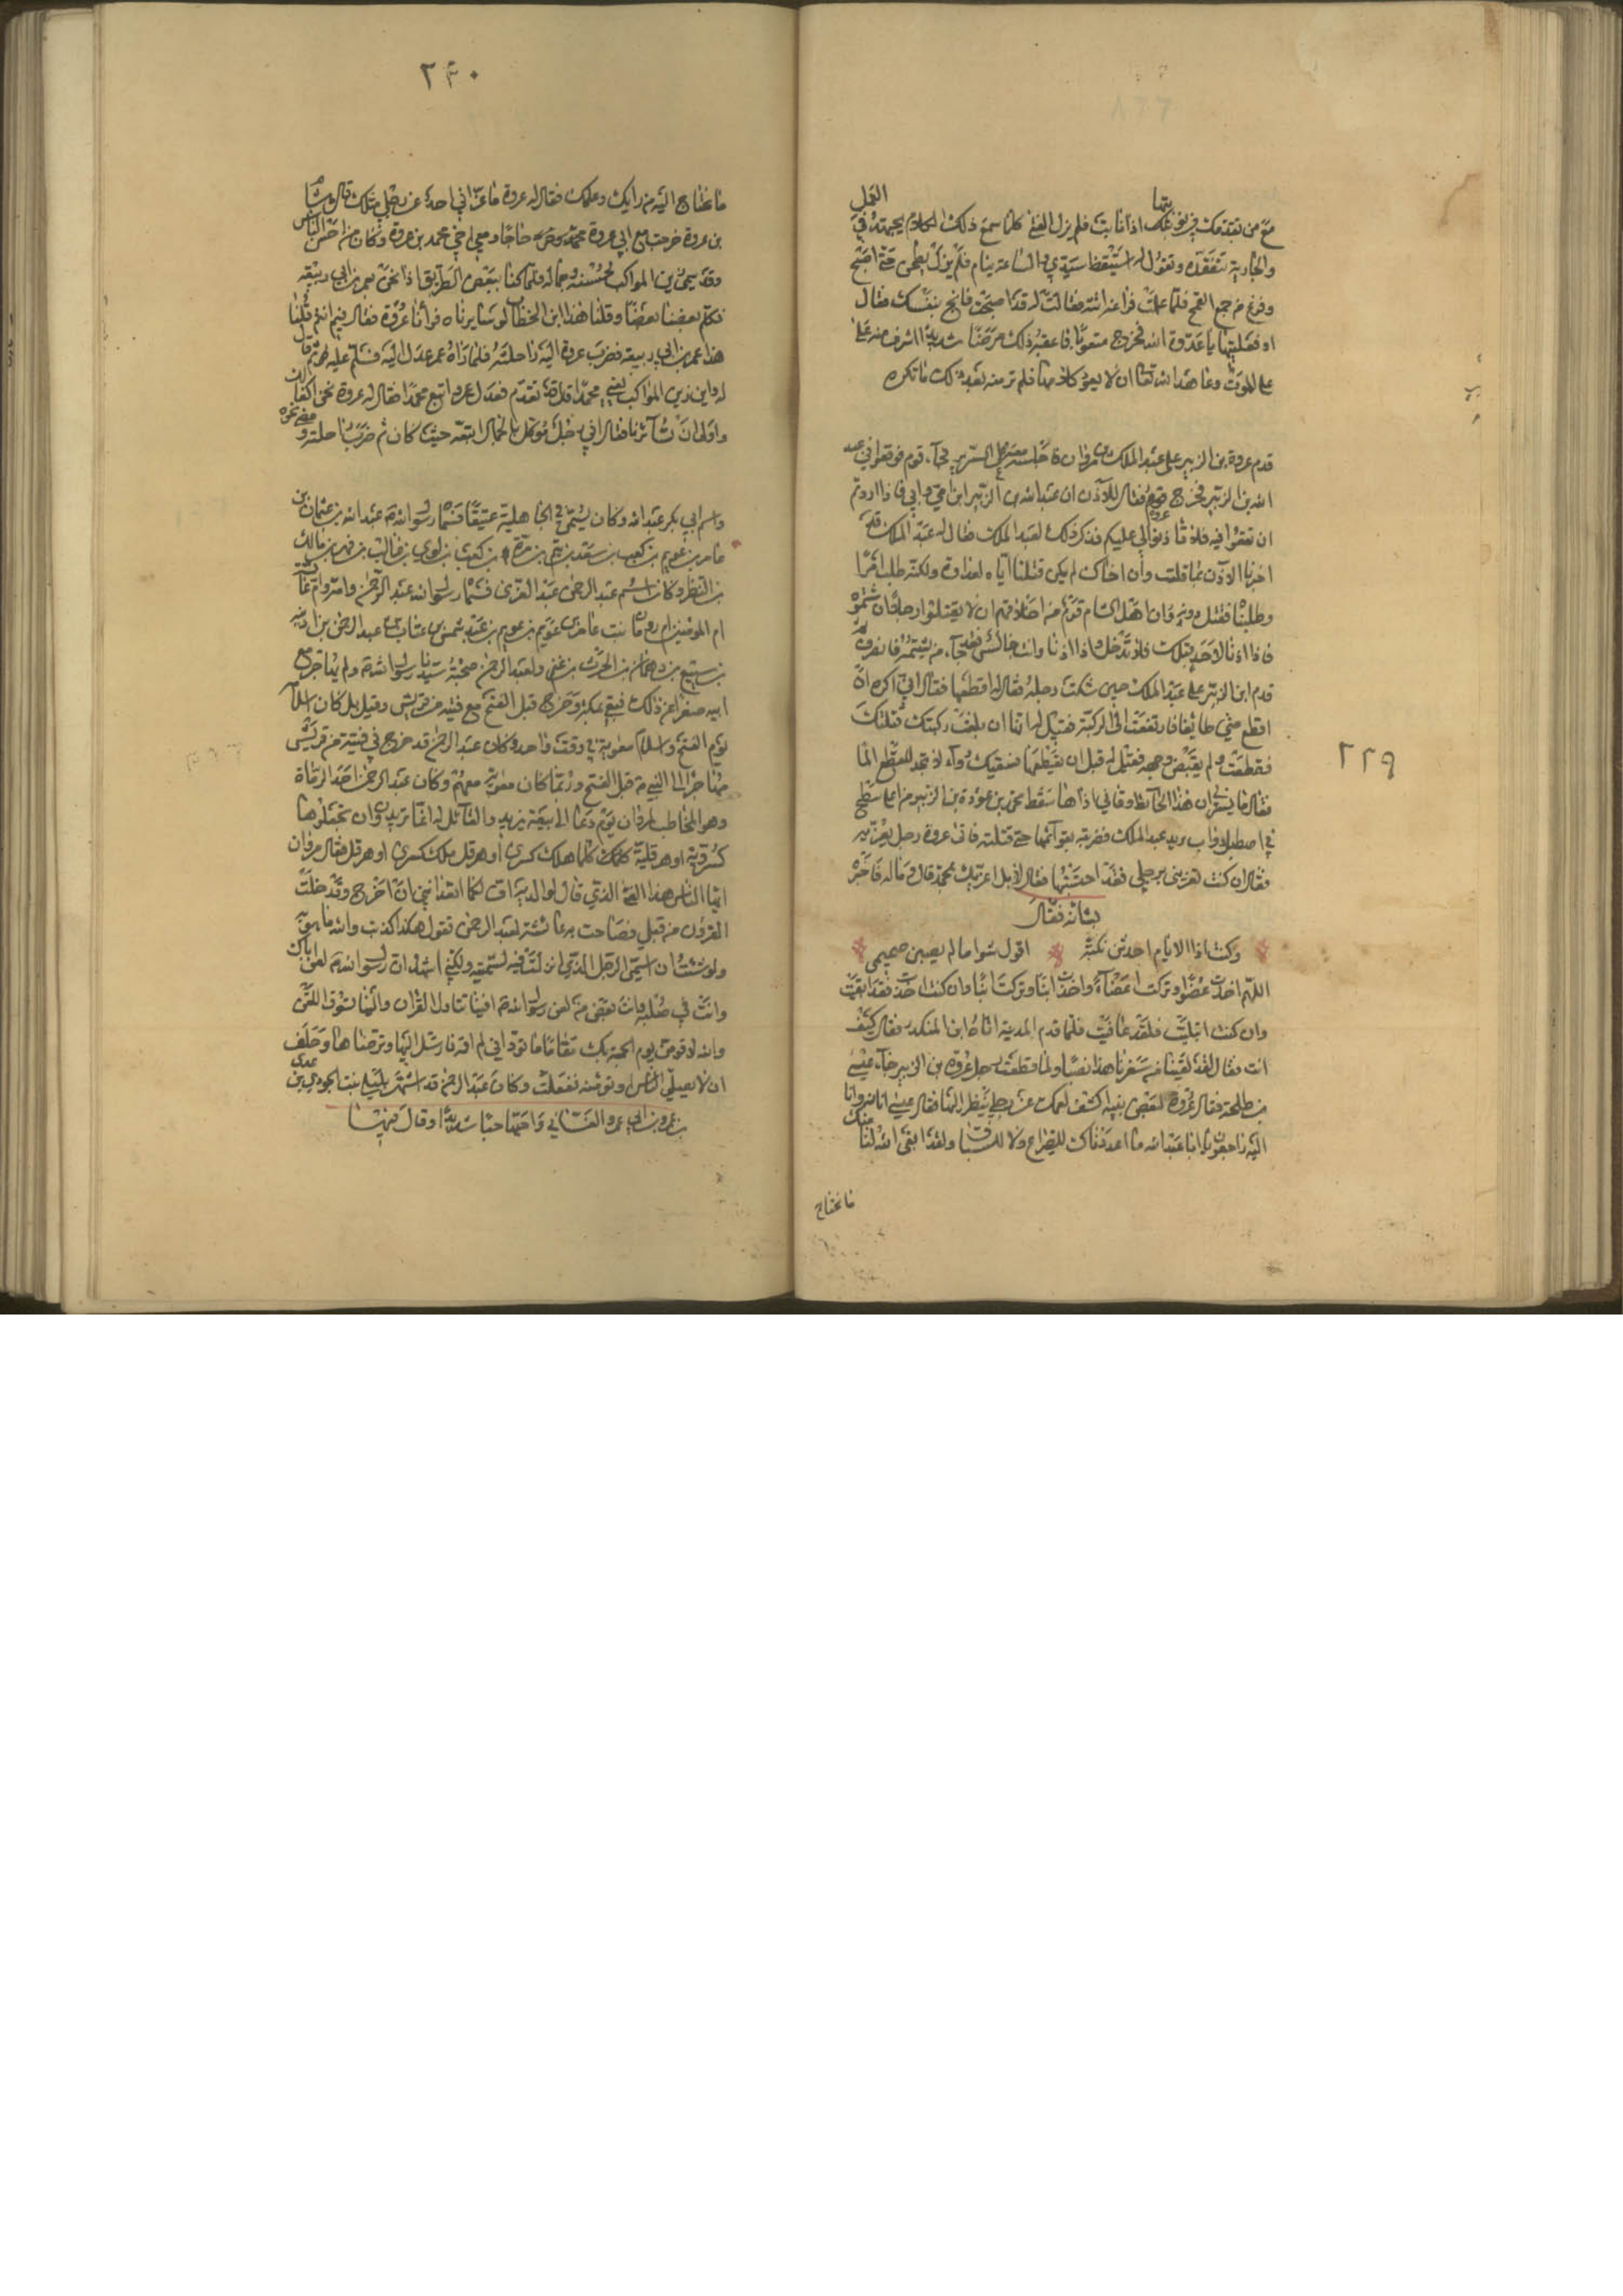 ٢٢٩
مع من تقدمك
والجارية تتفقده وتقول له استيقظ سيدي والساعة ينام فلم يزل يطحن حتى اصبح
وفرغ من جميع القمح فلما علمت فراغه اتته فقالت له قد اصبحت فانج بنفسك فقال
او فعلتها يا عدوة الله فخرج فاعقبه ذلك مرضا شديدا اشرف منه
على الموت وعاهد الله تعالى ان لا يعود فلم تر منه بعد ذلك ما تكره
قدم عروة بن الزبير على عبد الملك بن مروان فاجلسه معه على السرير فجاء قوم فوقعوا في عبد
الله بن الزبير فخرج عروة فقال للآذن ان عبد الله بن الزبير ابن امي وابي فاذا اردتم
ان تقعوا فيه فلا تأذنوا لي عليكم فذكر ذلك لعبد الملك فقال له عبد الملك قد
اخبرنا الآذن بما قلت وان اخاك لم يكن قتلنا اياه لعداوة ولكنه طلب امرا
وطلبناه فقتل دونه وان اهل الشام قوم من اخلاقهم ان لا يقتلوا رجلا الا شتموه
فاذا اذنا لاحد قبلك فلا تدخل واذا اذنا وانت جالس فقد جاء من يشتمه فانصرف
قدم ابن الزبير على عبد الملك حين شكت رجله فقال له اقطعها فقال اني اكره ان
اقطع مني طائفا فارتفعت الى الركبة فقيل له انها ان بلغت ركبتك قتلتك
فقطعت ولم يقبض وجهه فقيل له قبل ان يقطعها نسقيك دواء لا تجد للقطع الما
فقال ما يسرني ان هذا الحائط وقاني اذاها سقط محمد بن عروة بن الزبير من اعلى سطح
في اصطبل دواب عبد الملك فضربته بقوائمها حتى قتلته فاتى عروة رجل يعزيه
فقال ان كنت تعزيني برجلي فقد احتسبتها فقال لا بل اعزيك بمحمد قال وما له فاخبره
بشانه فقال
وكنت اذا الايام احدثن نكبة اقول شوا ما لم يصبن صميمي
اللهم اخذت عضوا وتركت اعضاء واخذت ابنا وتركت ابنا وان كنت اخذت فقد ابقيت
وان كنت ابتليت فلقد عافيت فلما قدم المدينة اتاه ابن المنكدر فقال كيف
انت فقال لقد لقينا من سفرنا هذا نصبا ولما قطعت رجل عروة بن الزبير جاء عيسى
بن طلحة فقال عروة لبعض بنيه اكشف لعمك عن رجلي ينظر اليها فقال عيسى انا لله وانا
اليه راجعون يا ابا عبد الله ما اعددناك للصراع ولا للسباق ولقد ابقى الله لنا منك
ما نحتاج
٢٣٠
ما نحتاج اليه من رايك وعلمك فقال له عروة ما عزاني احد عن رجلي مثلك قال هشام
بن عروة خرجت مع ابي عروة حاجا ومعي اخي محمد بن عروة وكان من احسن الناس
وقد سمي زين المواكب لحسنه وجماله فلما كنا ببعض الطريق اذا نحن بعمر بن ابي ربيعة
فكلم بعضنا بعضا وقلنا هذا ابن الخطاب لو سايرناه فرآنا عروة فقال فيم انتم قلنا
هذا عمر بن ابي ربيعة فضرب عروة اليه راحلته فلما رآه عمر عدل اليه فسلم عليه ثم قال
له واين زين المواكب يعني محمدا تقدم فعدل عمر واتبع محمدا فقال له عروة نحن اكفأ لك
واولى ان تسائرنا فقال اني رجل موكل بالجمال اتبعه حيث كان ثم ضرب راحلته ومضى نحوه
واسم ابي بكر عبد الله وكان يسمى في الجاهلية عتيقا فسماه رسول الله عبد الله بن عثمان بن
عامر بن كعب بن سعد بن تيم بن مرة بن كعب بن لوي بن غالب بن فهر بن مالك
بن النضر وكان اسم عبد الرحمن عبد العزى فسماه رسول الله عبد الرحمن وامه وام عائشة
ام المومنين ام رومان بنت عامر بن عويمر بن عبد شمس بن عتاب
بن سبيع بن دهمان بن الحرث بن غنم ولعبد الرحمن صحبة سيدنا رسول الله ولم يهاجر مع
ابيه صغرا عن ذلك فبقي بمكة وخرج قبل الفتح مع فتية من قريش وقيل بل كان اسلامه
يوم الفتح واسلام معوية في وقت واحد وكان عبد الرحمن قد خرج في فتية من قريش
مهاجرا الى النبي قبل الفتح وربما كان معوية معهم وكان عبد الرحمن احد الرماة
وهو المخاطب لمروان يوم دعا الى بيعة يزيد والقائل له انما تريدون ان تجعلوها
كسروية او هرقلية كلما هلك كسرى او هرقل ملك كسرى او هرقل فقال مروان
ايها الناس هذا الفتى الذي قال لوالديه اف لكما اتعدانني ان اخرج وقد خلت
القرون من قبلي فصاحت به عائشة لعبد الرحمن تقول هكذا كذبت والله ما هو به
ولو شئت ان اسمي الرجل الذي انزلت فيه لسميته ولكني اشهد ان رسول الله لعن اباك
وانت في صلبه وانت بعض من لعن رسول الله
ان لا يصلي الناس وكان عبد الرحمن قد اشتهر بليلى بنت الجودي بن عدي
بن عمرو بن ابي عمرو الغساني واحبها حبا شديدا وقال فيها